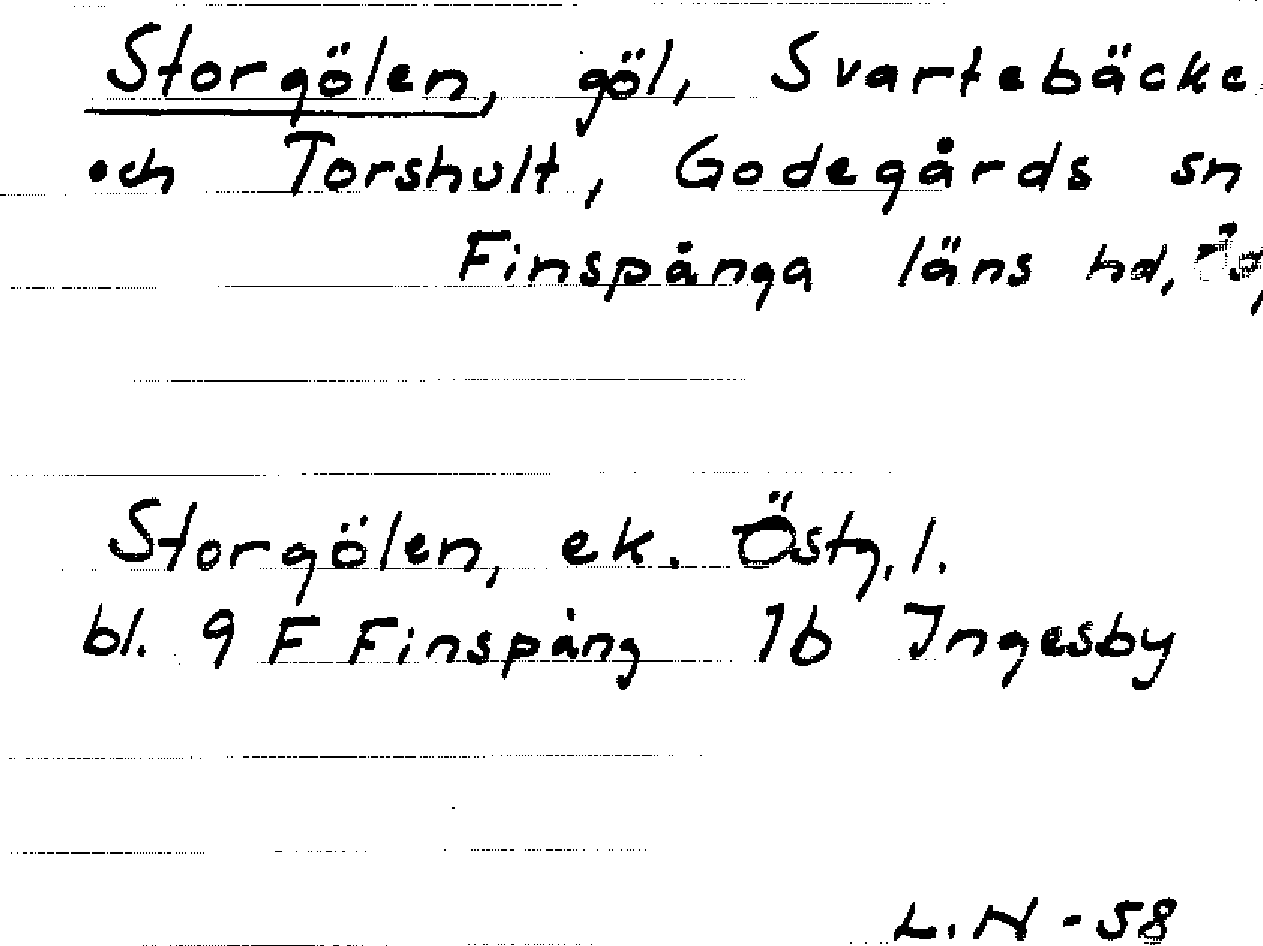 Storgölen, göl, Svartebäcke
och Torshult, Godegårds sn
Finspånga läns hd,
Storgölen, ek. Östg.l.
bl. 9 F Finspång 1b Ingesby
L.N -58